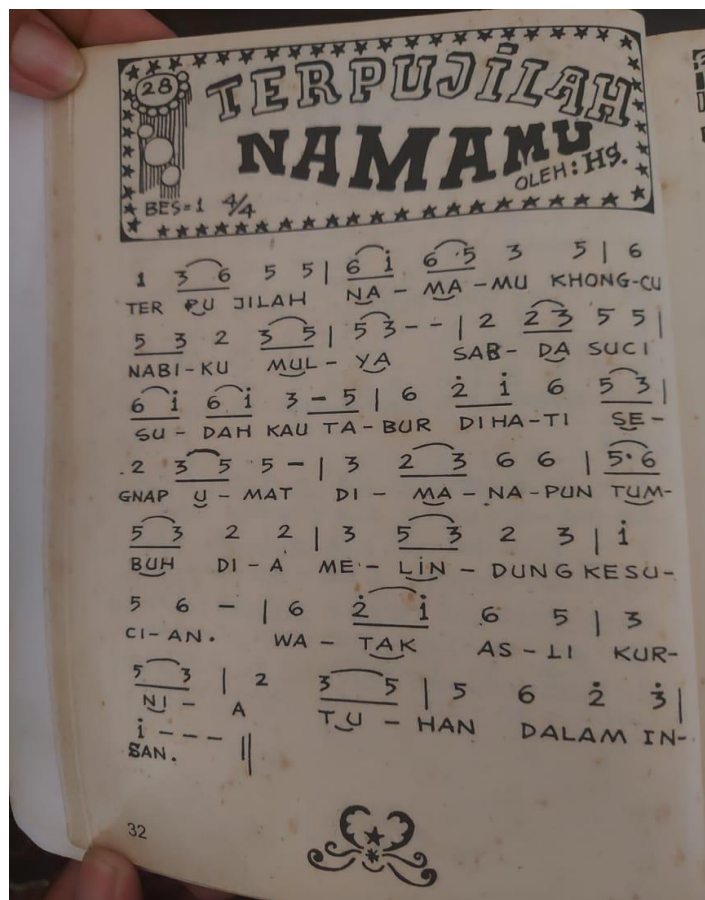 28
TERPUJILAH
NAMAMU
OLEH: HS.
BES=1 4/4
1 3 6 5 5 | 6 i̇ 6 ·5 3 5 | 6
TER PU JILAH NA - MA - MU KHONG-CU
5 3 2 3 5 | 5 3 - - | 2 2 3 5 5 |
NABI-KU MUL - YA SAB- DA SUCI
6 i̇ 6 i̇ 3 - 5 | 6 2̇ i̇ 6 5 3 |
SU - DAH KAU TA-BUR DIHA-TI SE-
.2 3 5 5 - | 3 2 3 6 6 | 5· 6
GNAP U - MAT DI - MA - NA-PUN TUM-
5 3 2 2 | 3 5 3 2 3 | i̇
BUH DI-A ME - LIN - DUNG KESU-
5 6 - | 6 2̇ i̇ 6 5 | 3
CI-AN. WA - TAK AS-LI KUR-
5 3 | 2 3 5 | 5 6 2̇ 3̇ |
NI - A TU - HAN DALAM IN-
i̇ - - - ||
SAN.
32